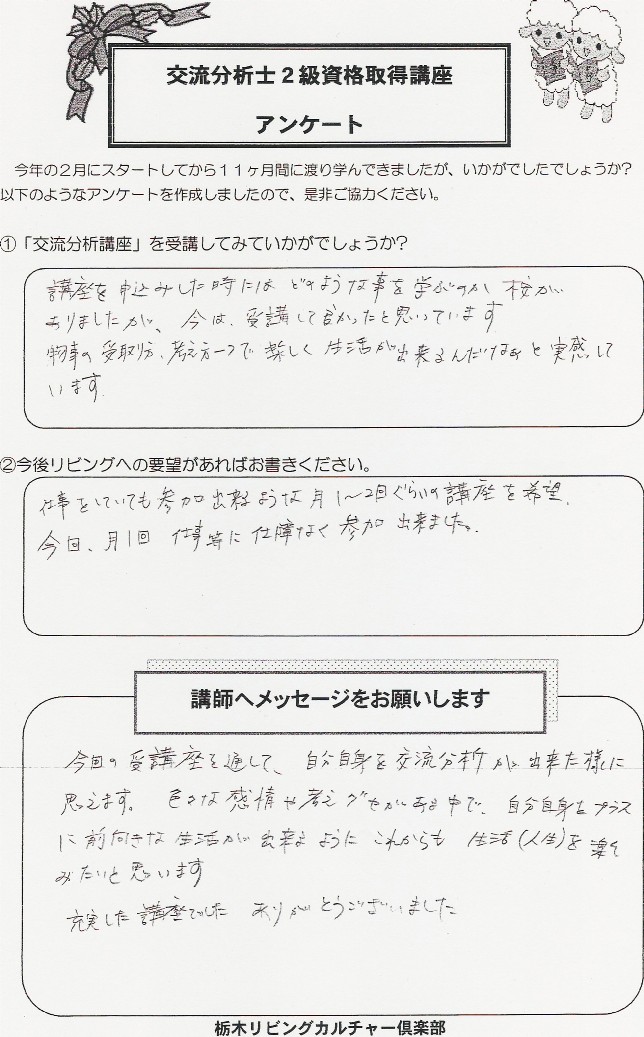 交流分析士２級資格取得講座
アンケート
今年の２月にスタートしてから１１ヶ月間に渡り学んできましたが、いかがでしたでしょうか？
以下のようなアンケートを作成しましたので、是非ご協力ください。
①「交流分析講座」を受講してみていかがでしょうか？
講座を申込みした時には どのような事を学ぶのか
ありましたが、今は、受講して良かったと思っています
物事の受取り方、考え方一つで楽しく生活が出来るんだなあと実感して
います.
②今後リビングへの要望があればお書きください。
仕事をしていても参加出来るような月1〜2回ぐらいの講座を希望.
今回、月1回 仕事等に仕障なく参加出来ました。
講師へメッセージをお願いします
今回の受講座を通して、自分自身を交流分析が出来た様に
思えます。色々な感情や考えグセがある中で、自分自身をプラス
に前向きな生活が出来るように これからも 生活(人生)を楽し
みたいと思います
充実した講座でした ありがとうございました
栃木リビングカルチャー倶楽部